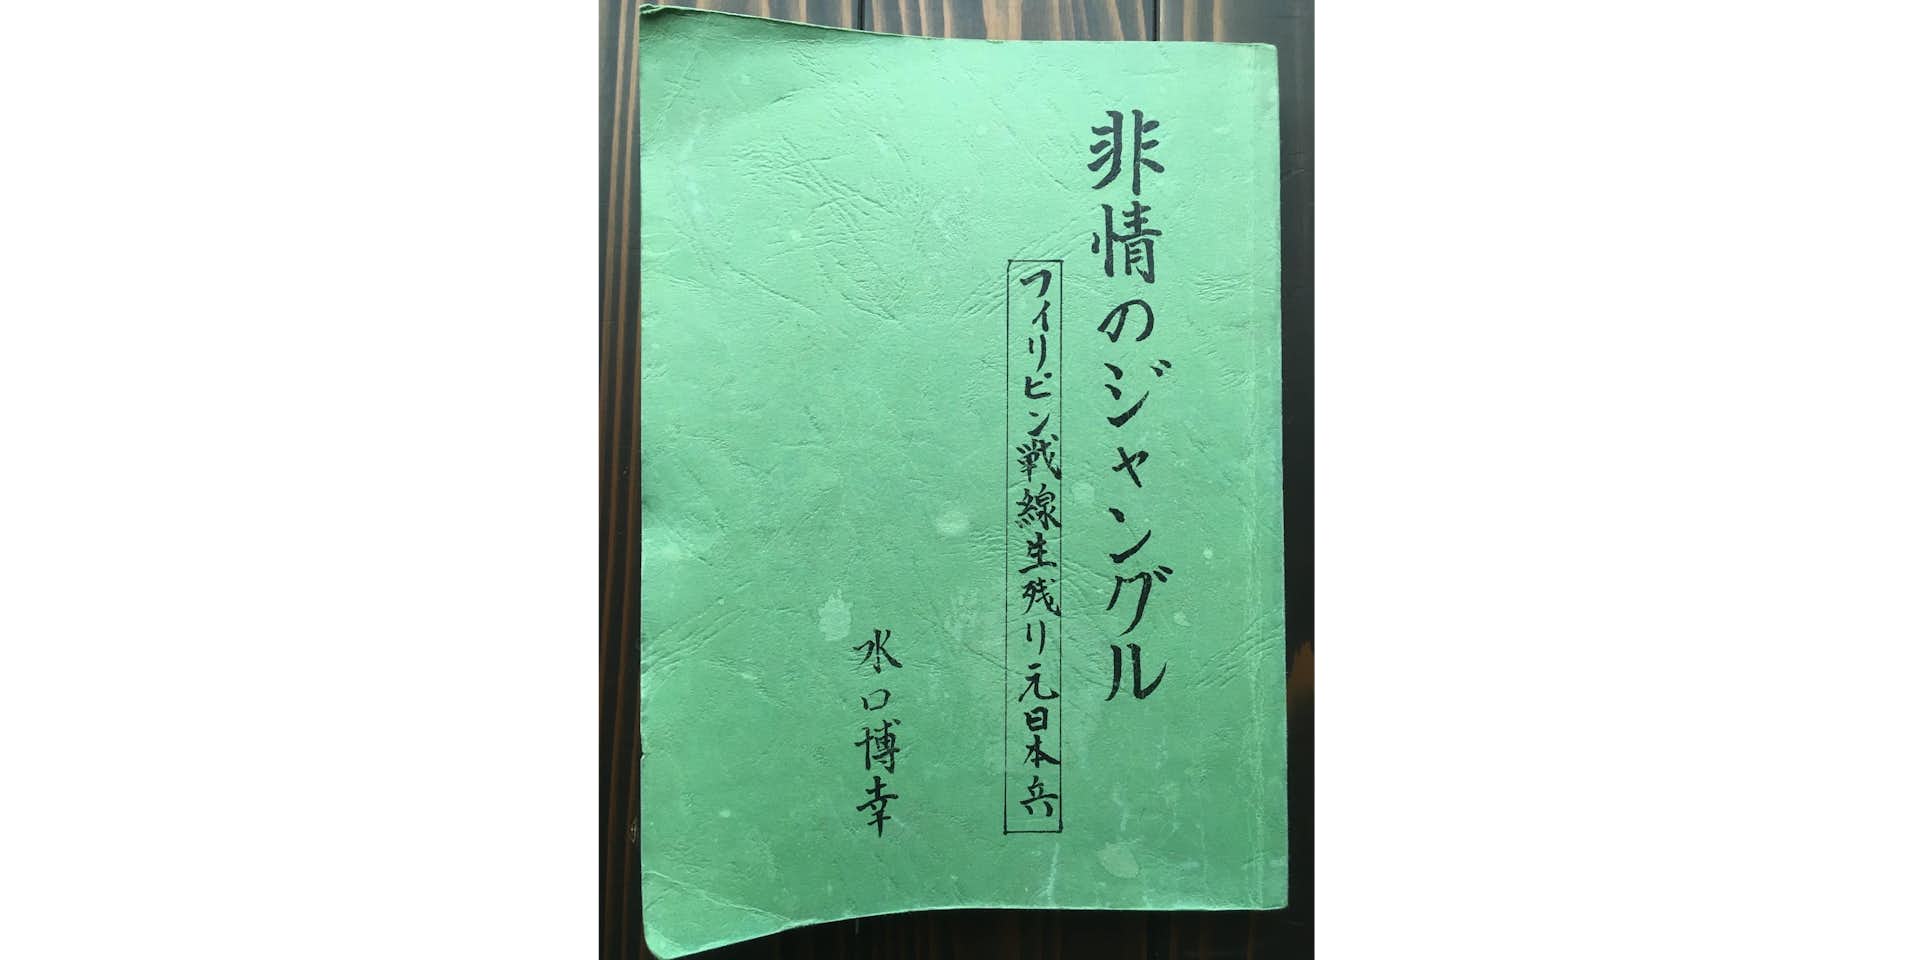 非情のジャングル
フィリピン戦線生残り元日本兵
水口博幸